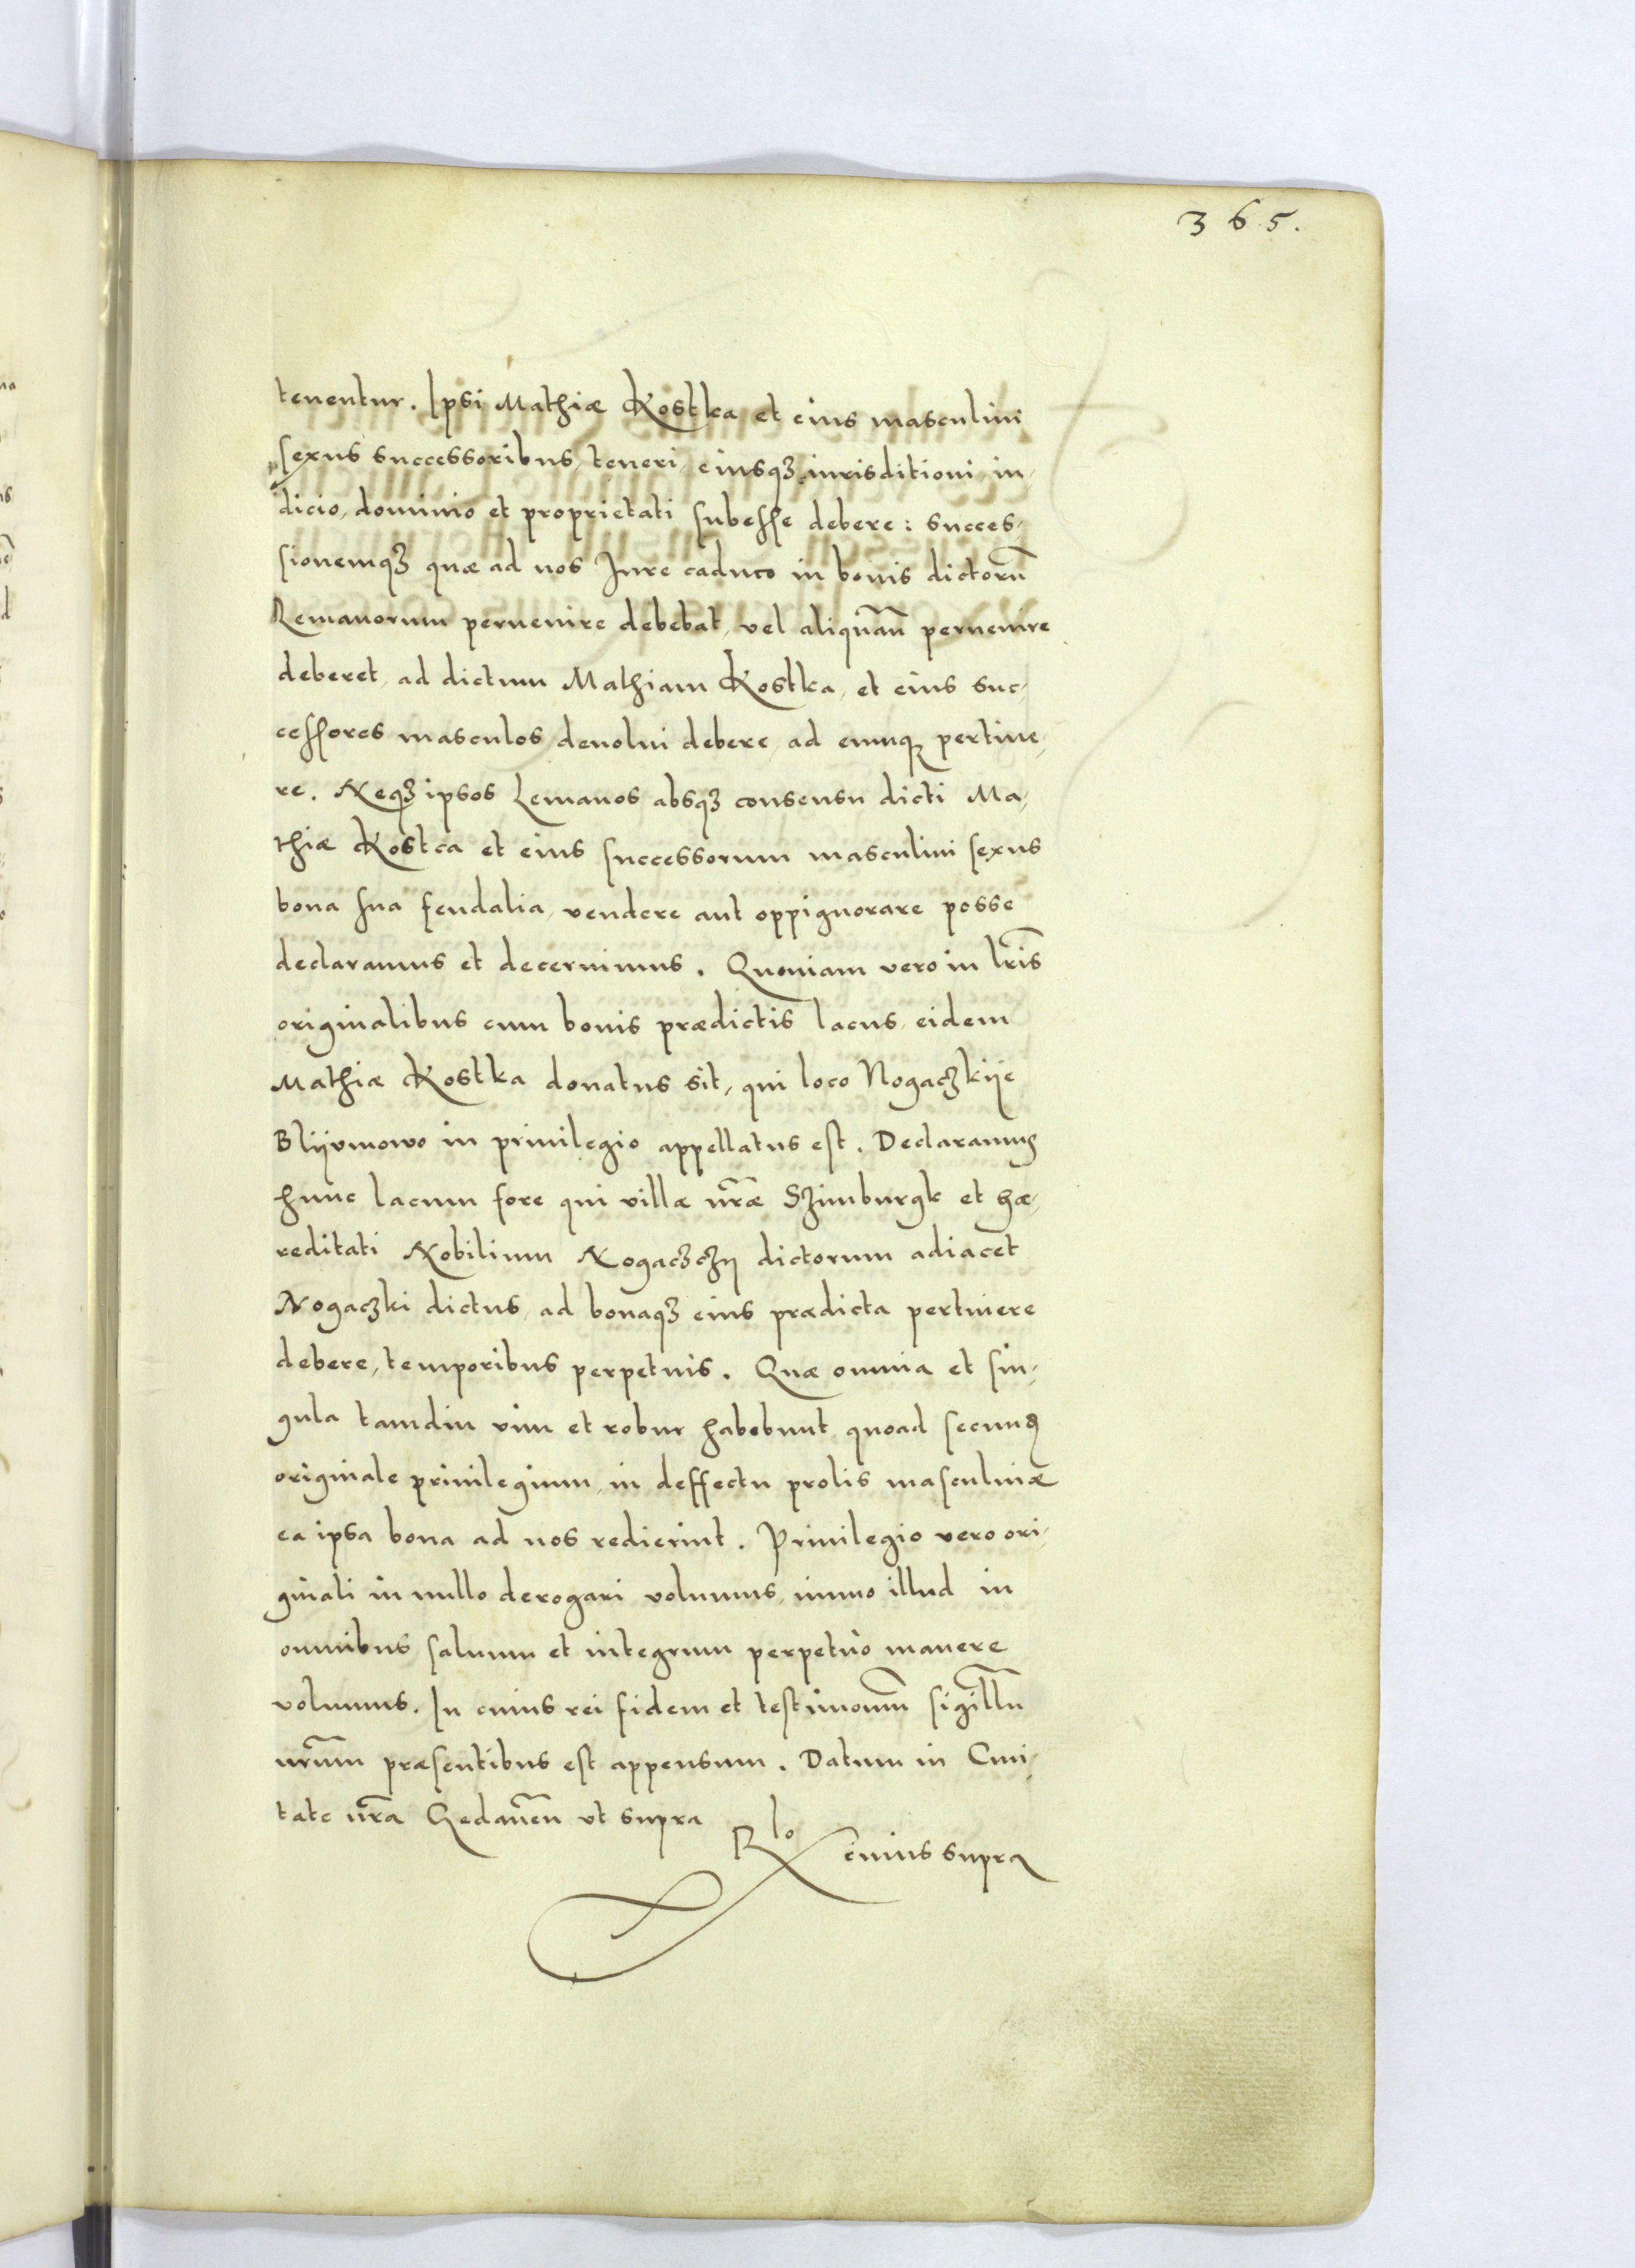 365.
tenentur. Ipsi Mathiæ Kostka et eius masculini
sexus successoribus, teneri, eiusqꝫ iurisditioni, iu,
dicio, dominio et proprietati subesse debere: succes,
sionemqꝫ quæ ad nos Iure caduco in bonis dictorũ
Lemanorum peruenire debebat, vel aliquãn peruenire
deberet, ad dictum Mathiam Kostka, et eius suc,
cessores masculos deuolui debere, ad eumqꝫ pertine,
re. Neqꝫ ipsos Lemanos absqꝫ consensu dicti Ma,
thiæ Kostca et eius successorum masculini sexus
bona sua feudalia, vendere aut oppignorare posse
declaramus et decernimus. Quoniam vero in lr̃is
originalibus cum bonis prædictis lacus, eidem
Mathiæ Kostka donatus sit, qui loco Nogaczkije
Blijvmowo in priuilegio appellatus est. Declaramus
hunc lacum fore qui villæ nr̃æ Szimburgk et hæ,
reditati Nobilium Nogaczczij dictorum adiacet
Nogaczki dictus, ad bonaqꝫ eius prædicta pertinere
debere, temporibus perpetuis. Quæ omnia et sin,
gula tamdiu vim et robur habebunt, quoad secundum
originale priuilegium, in deffectu prolis masculinæ
ea ipsa bona ad nos redierint. Priuilegio vero ori,
ginali in nullo derogari volumus, immo illud in
omnibus saluum et integrum perpetuo manere
volumus. In cuius rei fidem et testimoniũ sigillũ
nr̃um præsentibus est appensum. Datum in Ciui,
tate nr̃a Gedaneñ vt supra
Rlo eiuius supra